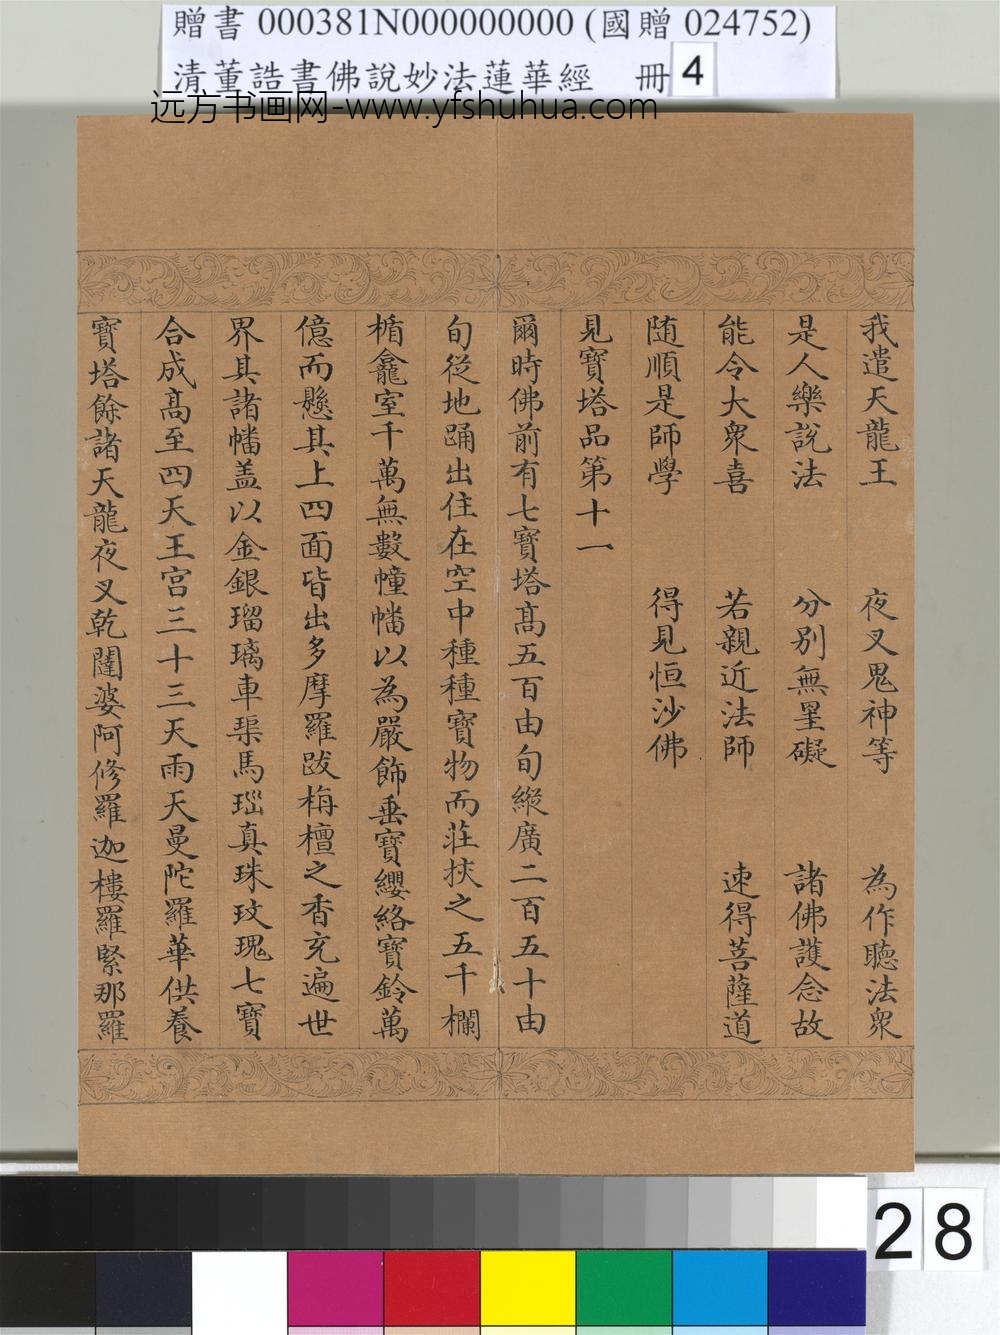 贈書 000381N000000000 (國贈 024752)
清董誥書佛說妙法蓮華經 冊 4
远方书画网-www.yfshuhua.com
我遣天龍王 夜叉鬼神等 為作聽法衆
是人樂說法 分別無罣礙 諸佛護念故
能令大衆喜 若親近法師 速得菩薩道
随順是師學 得見恒沙佛
見寶塔品第十一
爾時佛前有七寶塔髙五百由旬縱廣二百五十由
旬從地踊出住在空中種種寶物而莊挍之五千欄
楯龕室千萬無數幢幡以為嚴飾垂寶纓絡寶鈴萬
億而懸其上四面皆出多摩羅跋栴檀之香充遍世
界其諸幡盖以金銀瑠璃車渠馬瑙真珠玟瑰七寶
合成髙至四天王宫三十三天雨天曼陀羅華供養
寶塔餘諸天龍夜叉乾闥婆阿修羅迦樓羅緊那羅
28